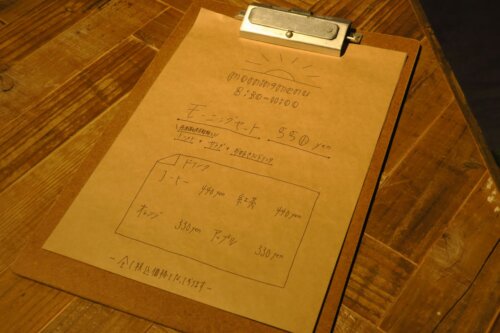 morningmenu
8:30-10:00
モーニングセット 550 yen
ドリンク
コーヒー 440yen 紅茶 440yen
オレンジ 330yen アップル 330yen
- 全て税込価格となります -